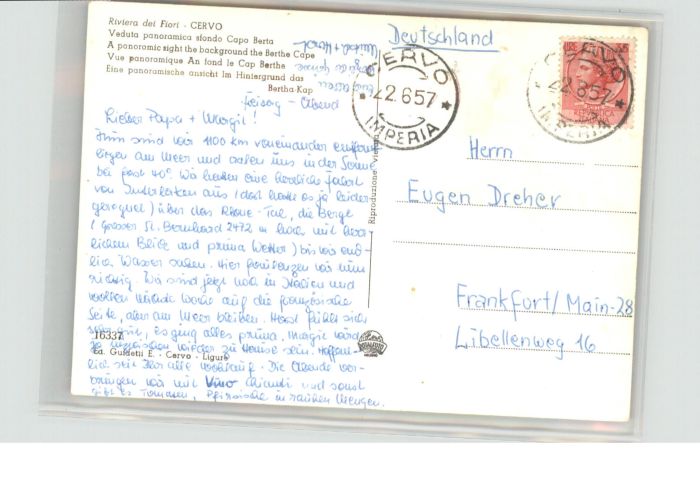 Riviera dei Fiori - CERVO
Veduta panoramica sfondo Capo Berta
A panoramic sight the background the Berthe Cape
Vue panoramique An fond le Cap Berthe
Eine panoramische ansicht im Hintergrund das
Bertha-Kap
Freitag - Abend
Lieber Papa + Margit!
Nun sind wir 1100 km voneinander entfernt
liegen am Meer und aalen uns in der Sonne
bei fast 40°. Wir hatten eine herrliche Fahrt
von Interlaken aus (dort hatte es ja leider
geregnet) über das Rhone-Tal, die Berge
(Grosser St. Bernhard 2472 m hoch mit herr-
lichem Blick und prima Wetter) bis wir end-
lich Wasser sahen. Hier faulenzen wir nun
richtig. Wir sind jetzt noch in Italien und
wollen nächste Woche auf die französische
Seite, aber am Meer bleiben. Horst fühlt sich
sehr gut, es ging alles prima. Margit wird
ja inzwischen wieder zu Hause sein. Hoffent-
lich seid Ihr alle wohlauf. Die Abende ver-
bringen wir mit Vino Chianti und sonst
gibt es Tomaten, Pfirsiche in rauhen Mengen.
16337
Ed. Guidetti E. - Cervo - Ligure
Riproduzione Vietata
Deutschland
CERVO
22.6.57
IMPERIA
LIRE
CERVO
22.6.57
IMPERIA
Herrn
Eugen Dreher
Frankfurt/Main-28
Libellenweg 16